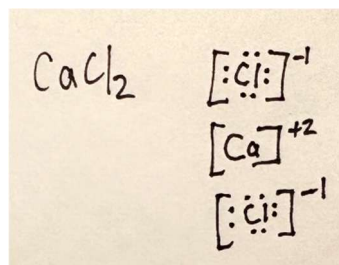 CaCl₂
[:C̈l:]⁻¹
[Ca]⁺²
[:C̈l:]⁻¹